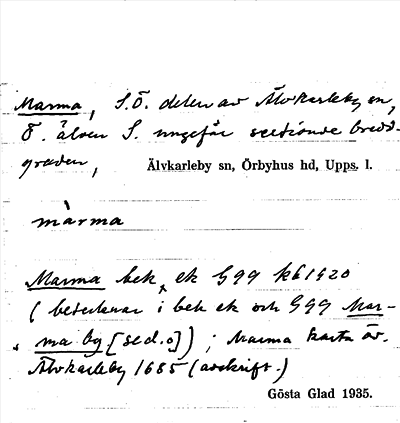 Marma, S.Ö. delen av Älvkarleby sn,
Ö. älven S. ungefär bredd-
graden,
Älvkarleby sn, Örbyhus hd, Upps. l.
màrma
Marma bek, ek G99 kb 1920
(betecknar i bek ek och G99 Mar-
ma by [se d.o]); Marma karta öv.
Älvkarleby 1685 (avskrift.)
Gösta Glad 1935.